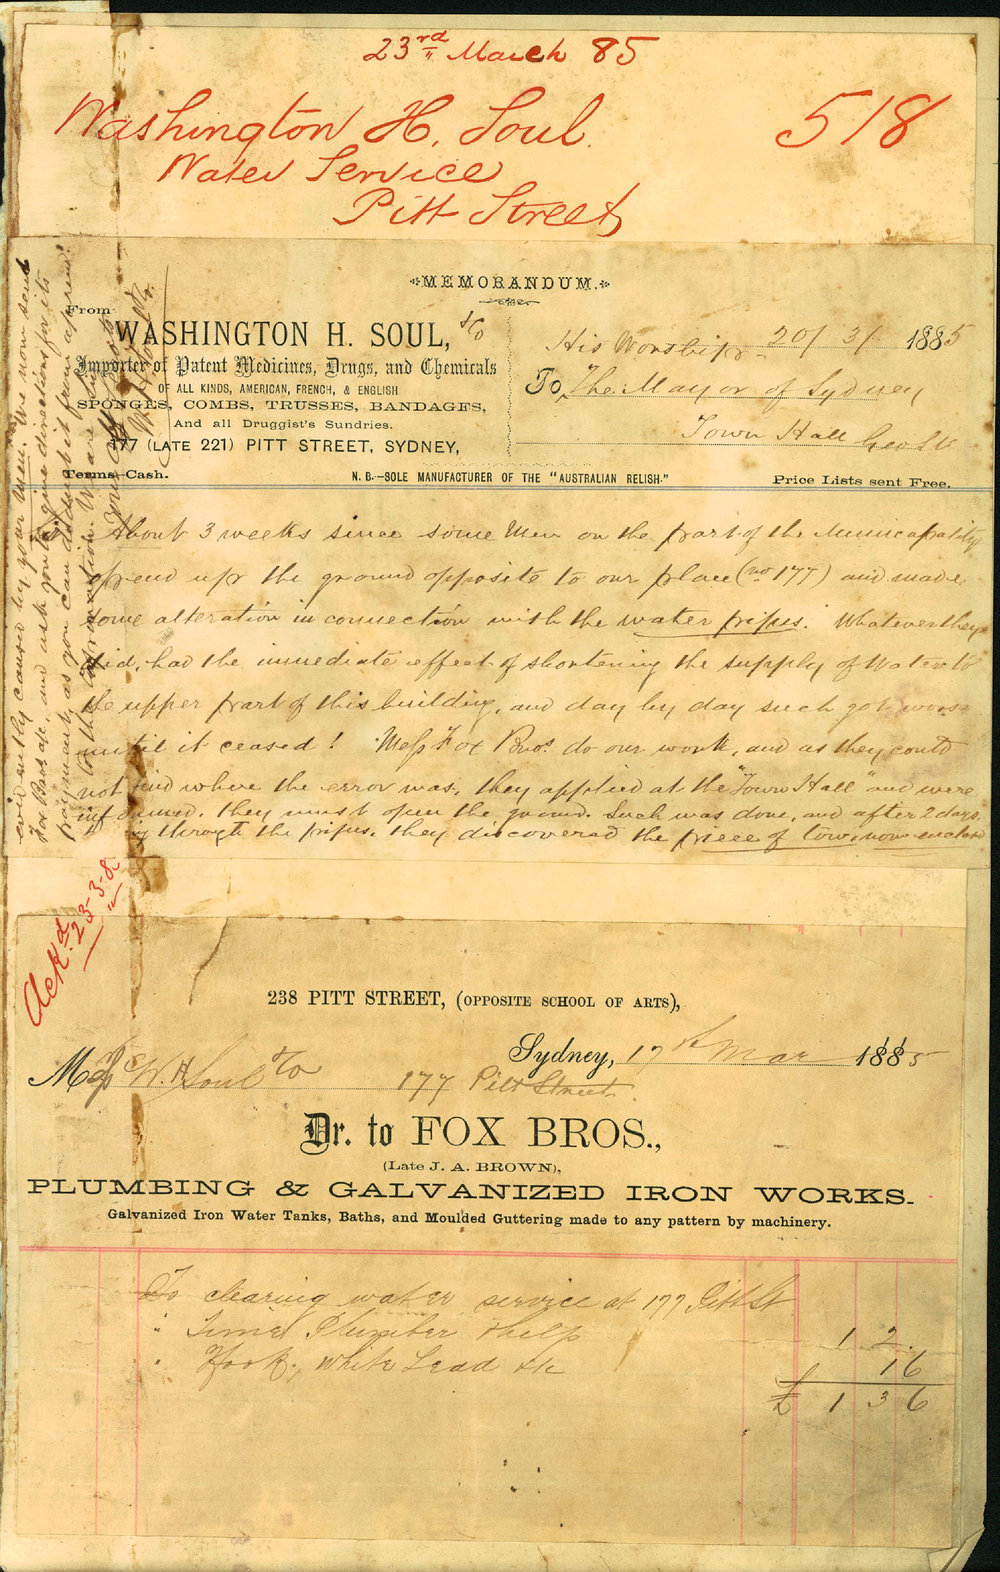 23rd March 85
Washington H. Soul
518
Water Service
Pitt Street
MEMORANDUM.
From
WASHINGTON H. SOUL, & Co
Importer of Patent Medicines, Drugs, and Chemicals
OF ALL KINDS, AMERICAN, FRENCH, & ENGLISH
SPONGES, COMBS, TRUSSES, BANDAGES,
And all Druggist's Sundries.
177 (LATE 221) PITT STREET, SYDNEY,
20/3/1885
His Worship
To The Mayor of Sydney
Town Hall Geo St
Terms—Cash.
N. B.—SOLE MANUFACTURER OF THE "AUSTRALIAN RELISH."
Price Lists sent Free.
About 3 weeks since some Men on the part of the Municipality
opened up the ground opposite to our place (no 177) and made
some alteration in connection with the water pipes. Whatever they
did, had the immediate effect of shortening the supply of Water to
the upper part of this building, and day by day such got worse
until it ceased! Messrs Fox Bros. do our work, and as they could
not find where the error was, they applied at the "Town Hall" and were
informed, they must open the ground. Such was done, and after 2 days
through the pipes, they discovered the piece of tow, now enclosed
evidently caused by your men. We now send
Fox Bros a/c, and ask you to give directions for its
payment, as you can deduct it from
Ackd. 23-3-8
238 PITT STREET, (OPPOSITE SCHOOL OF ARTS),
Sydney, 17th Mar 1885
Mess W. H Soul & Co
177 Pitt Street.
Dr. to FOX BROS.,
(Late J. A. BROWN),
PLUMBING & GALVANIZED IRON WORKS.
Galvanized Iron Water Tanks, Baths, and Moulded Guttering made to any pattern by machinery.
To clearing water service at 177 Pitt St
" Time Plumber & help 1 2
" Hook, White Lead &c 1 6
£ 1 3 6